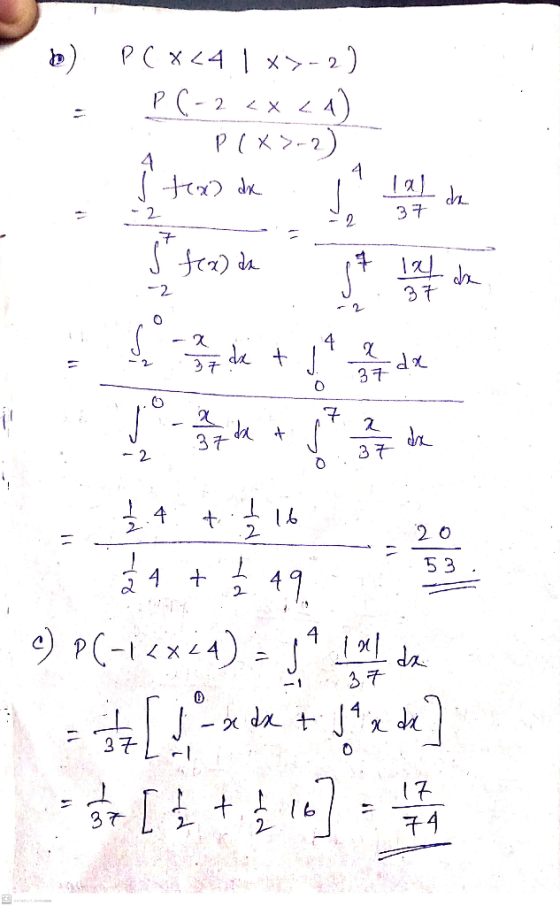 b) P( x<4 | x>-2)
= P(-2 < x < 4) / P(x>-2)
= ∫_{-2}^{4} f(x) dx / ∫_{-2}^{7} f(x) dx = ∫_{-2}^{4} |x|/37 dx / ∫_{-2}^{7} |x|/37 dx
= ∫_{-2}^{0} -x/37 dx + ∫_{0}^{4} x/37 dx / ∫_{-2}^{0} -x/37 dx + ∫_{0}^{7} x/37 dx
= 1/2 . 4 + 1/2 16 / 1/2 4 + 1/2 49 = 20/53 .
c) P(-1<x<4) = ∫_{-1}^{4} |x|/37 dx
= 1/37 [ ∫_{-1}^{0} -x dx + ∫_{0}^{4} x dx ]
= 1/37 [ 1/2 + 1/2 16 ] = 17/74